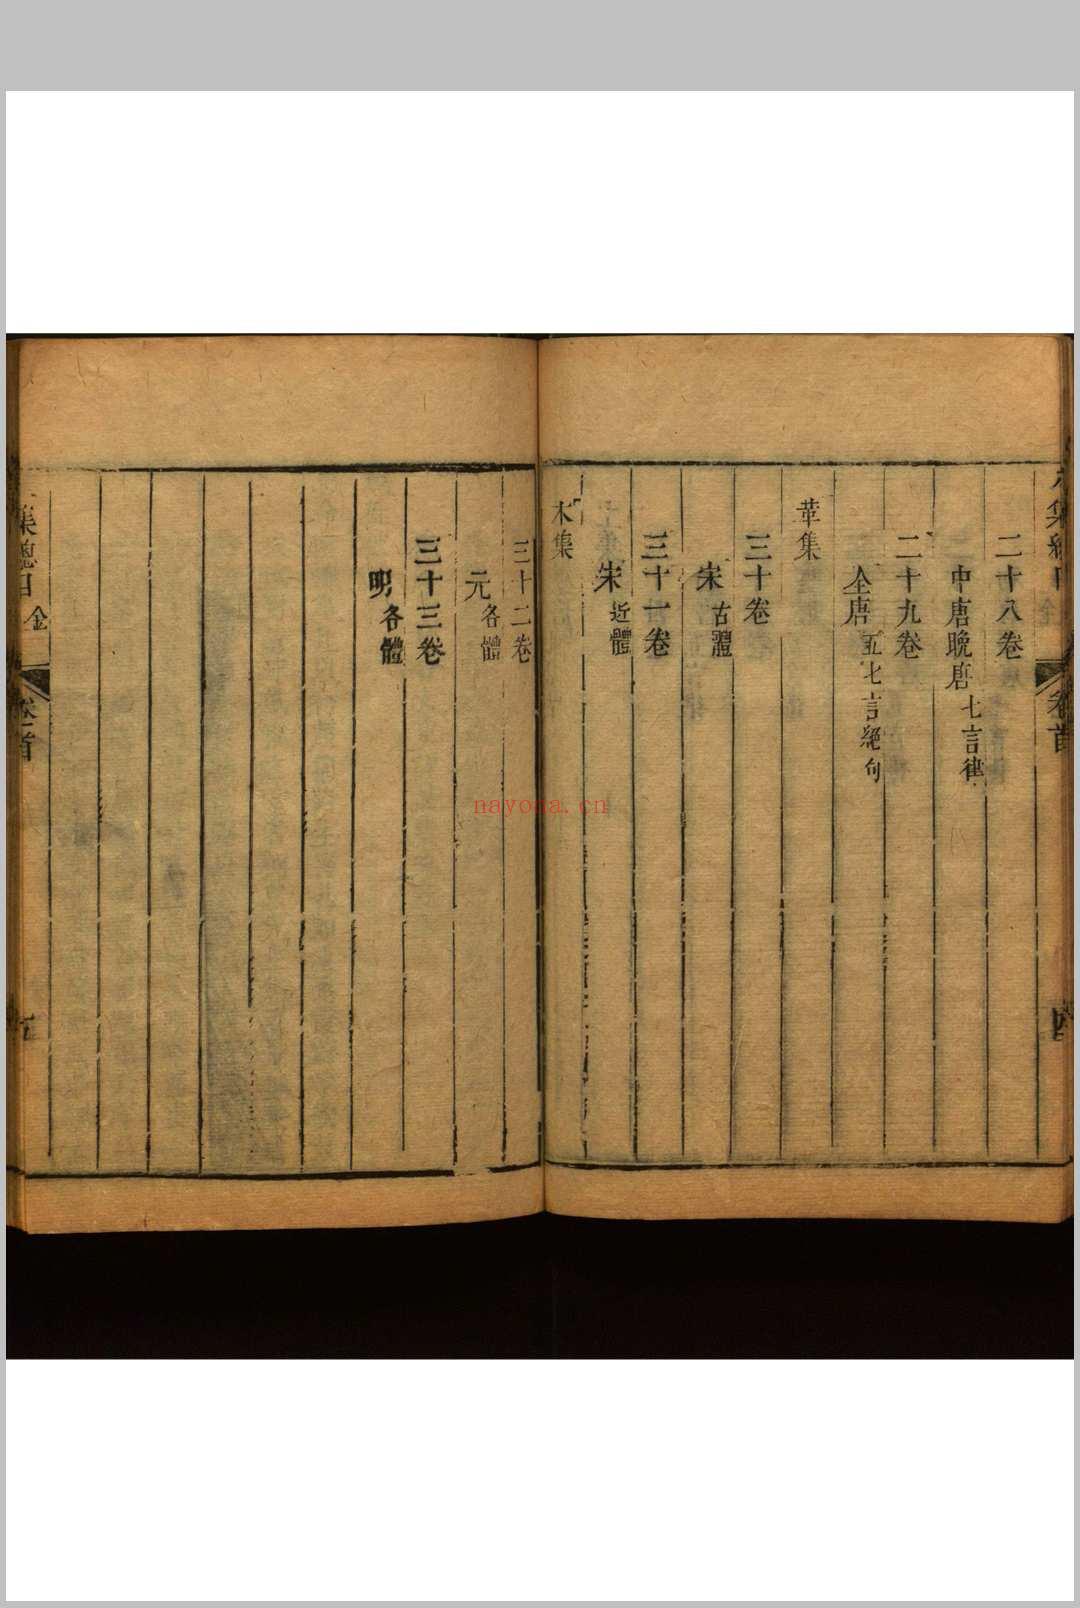 二十八卷
中唐晚唐七言律
二十九卷
全唐五七言絕句
革集
三十卷
宋古體
三十一卷
宋近體
木集
三十二卷
元各體
三十三卷
明各體
集總目 金 卷首
nayona.cn